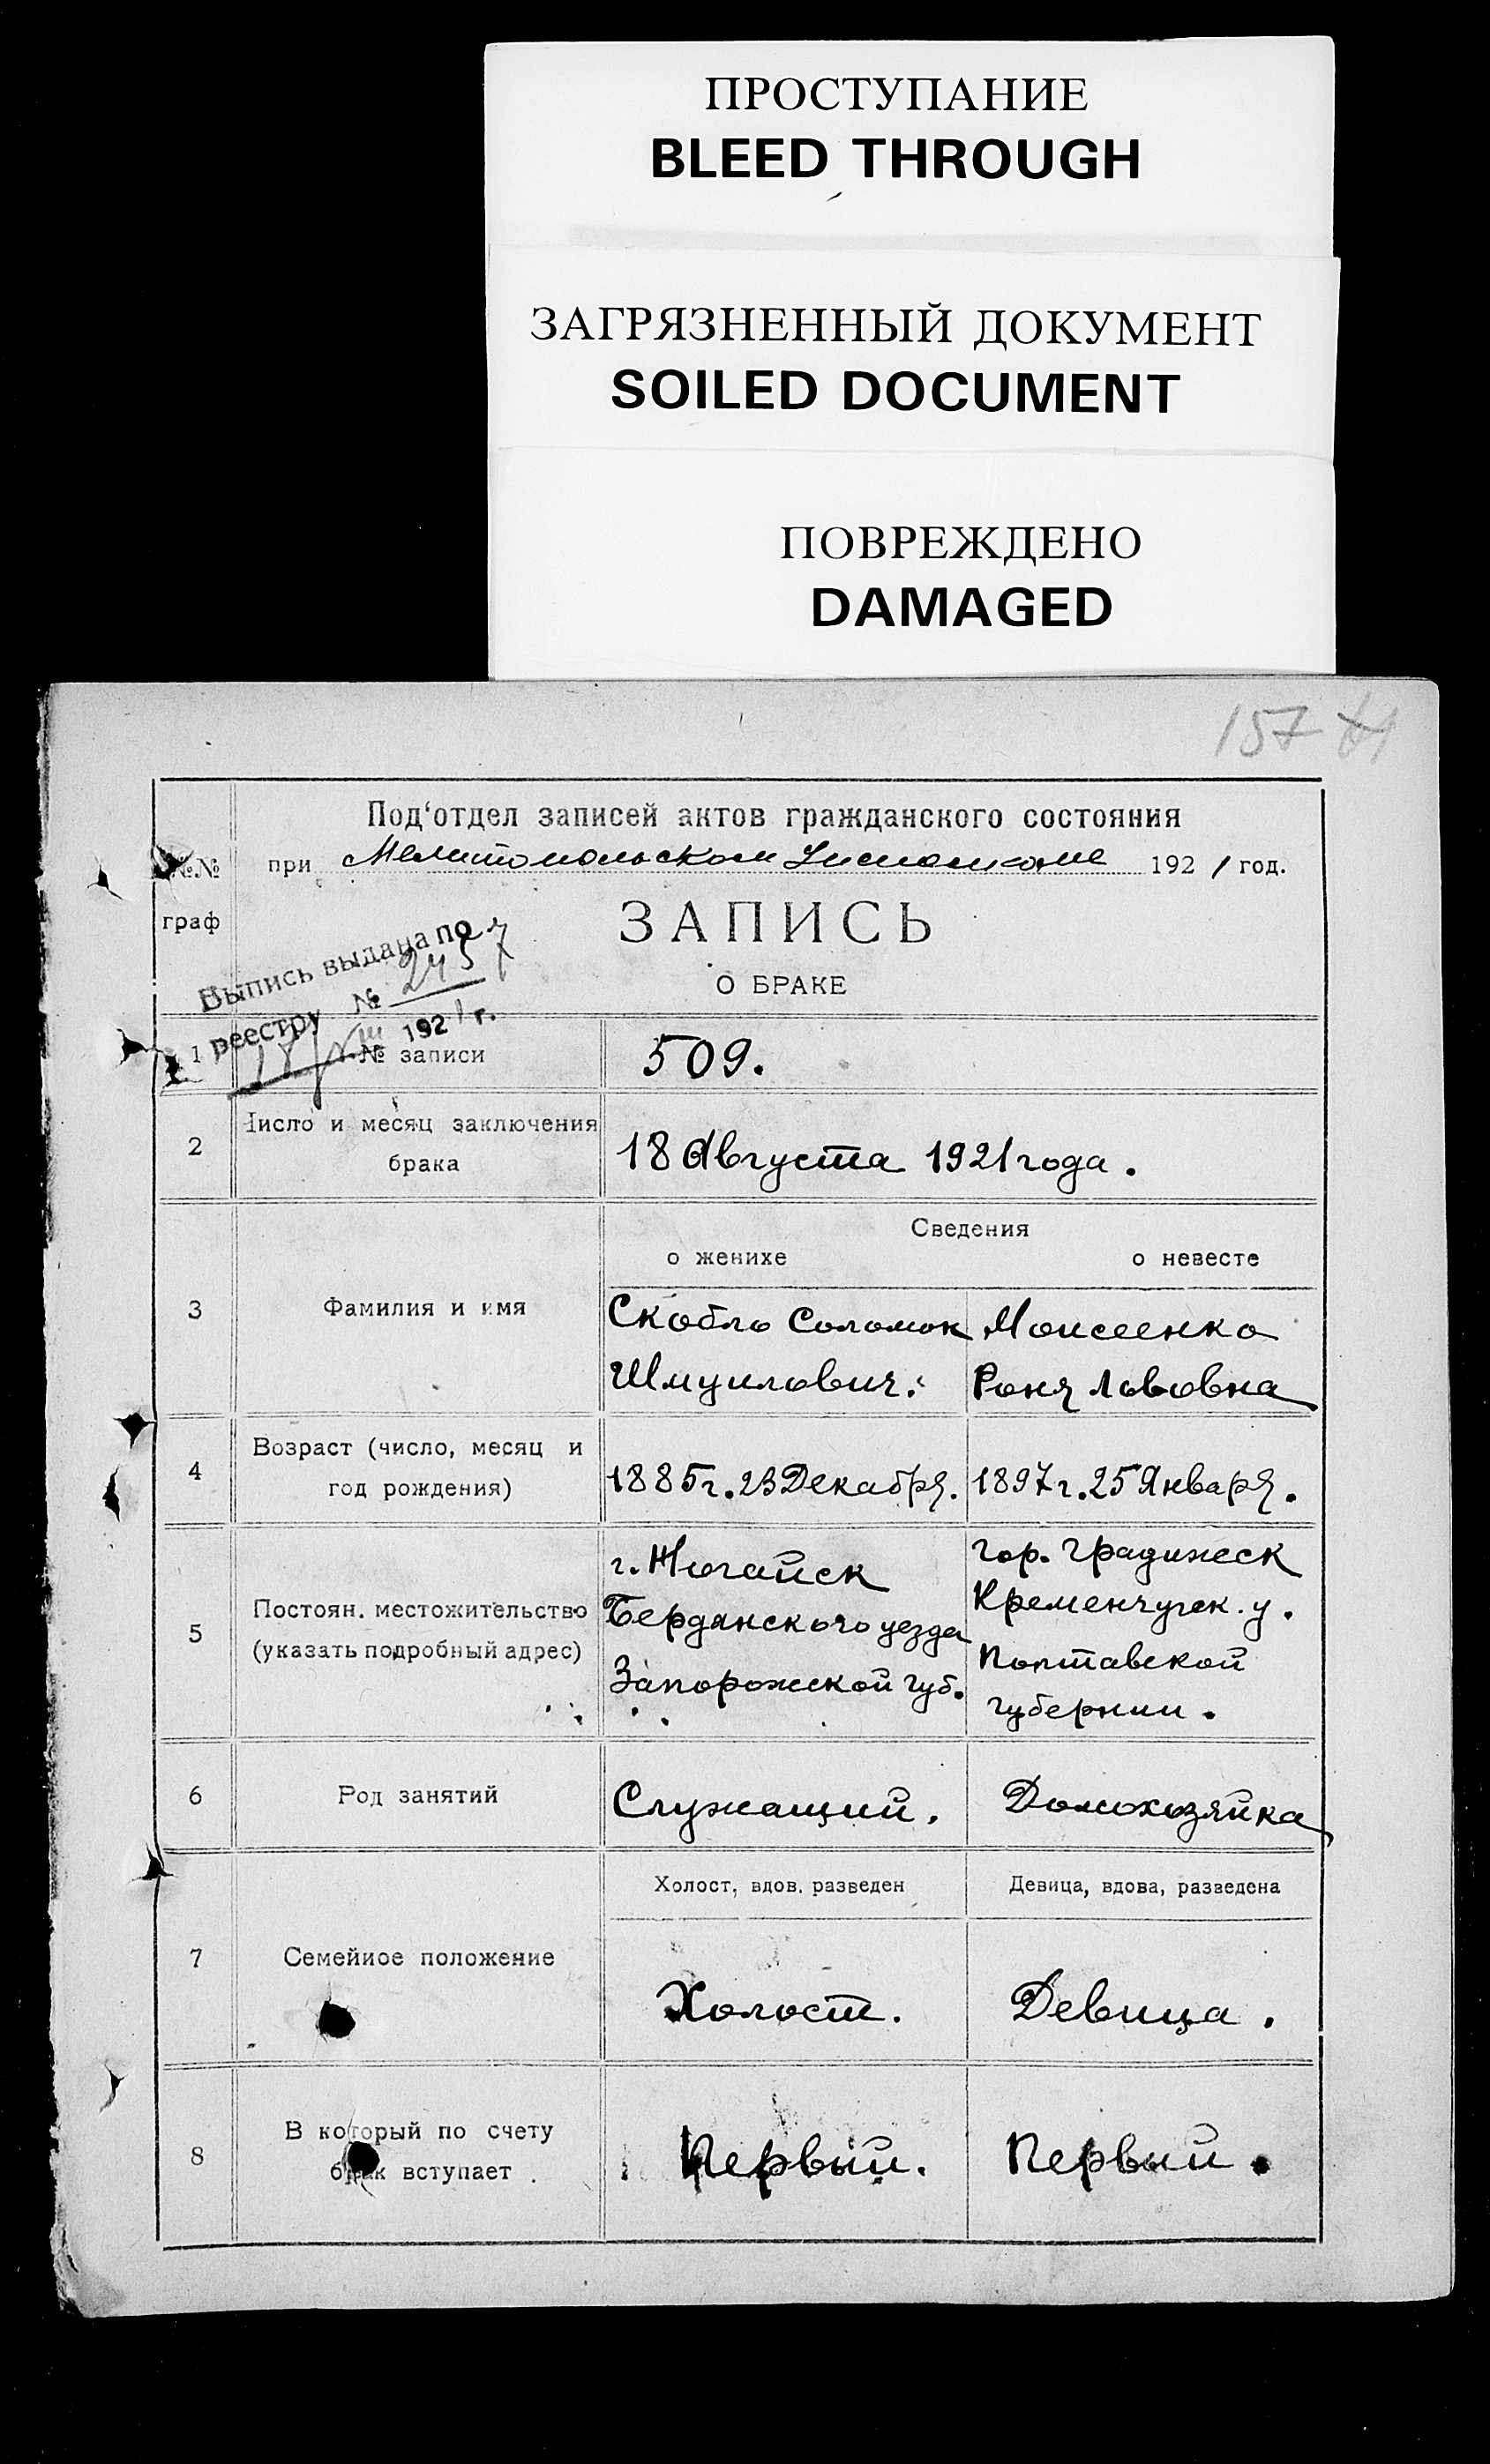 ПРОСТУПАНИЕ
BLEED THROUGH
ЗАГРЯЗНЕННЫЙ ДОКУМЕНТ
SOILED DOCUMENT
ПОВРЕЖДЕНО
DAMAGED
157
Под‘отдел записей актов гражданского состояния
№№ граф
при Мелитопольском 1921 год.
ЗАПИСЬ
О БРАКЕ
Выпись выдана по
реестру № 2457
18/VIII 1921 г.
1 № записи 509.
2 Число и месяц заключения
брака
18 Августа 1921 года.
Сведения
о женихе о невесте
3 Фамилия и имя
Скобло Соломон Моисеенко
Шмуилович. Роня Львовна
4 Возраст (число, месяц и
год рождения)
1885 г. 23 Декабря. 1897 г. 25 Января.
5 Постоян. местожительство
(указать подробный адрес)
г. Ногайск
Бердянского уезда
Запорожской губ.
гор. Градижск
Кременчугск. у.
Полтавской
губернии.
6 Род занятий Служащий. Домохозяйка
Холост, вдов, разведен Девица, вдова, разведена
7 Семейное положение Холост. Девица.
8 В который по счету
брак вступает
Первый. Первый.